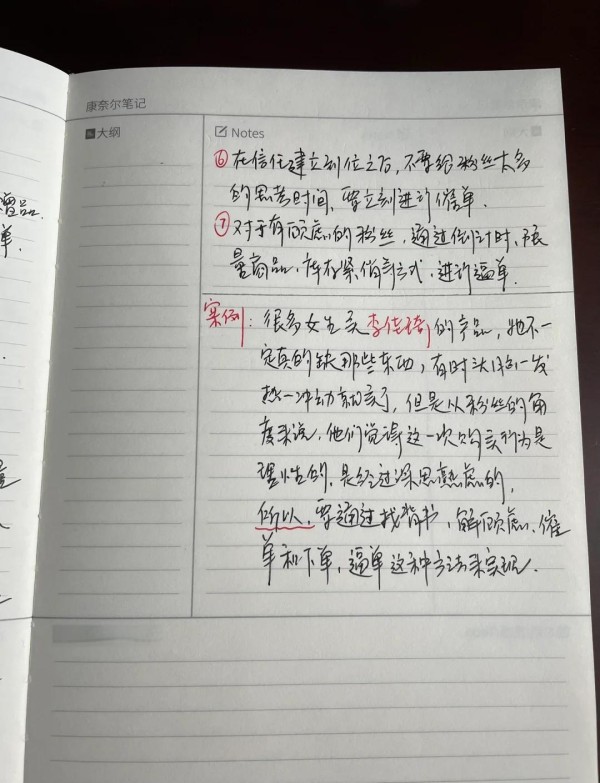 增品.
单.
康奈尔笔记
大纲
Notes
⑥在信任建立到位之后,不要给粉丝太多
的思考时间,要立刻进行催单.
⑦对于有顾虑的粉丝,通过倒计时、限
量商品、库存紧俏方式,进行逼单.
案例:很多女生买李佳琦的产品,她不一
定真的缺那些东西,有时头脑一发
热一冲动就买了,但是从粉丝的角
度来说,他们觉得这一次购买行为是
理性的,是经过深思熟虑的,
所以,要通过找背书,解顾虑、催
单和下单,逼单这种方法来实现.